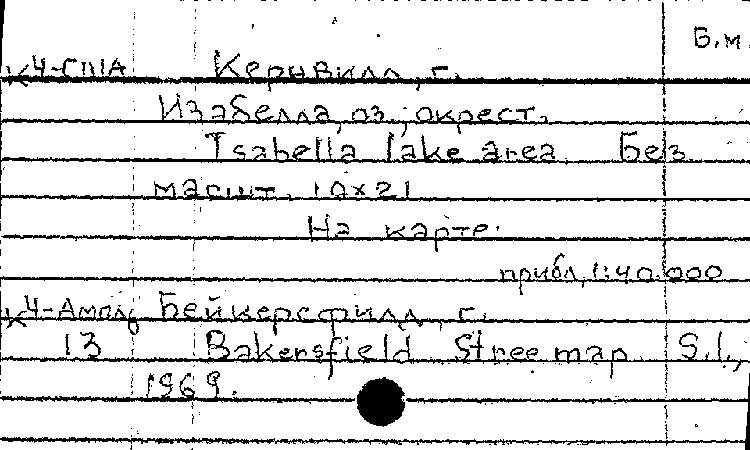 Б.м.
К4-США Кернвилл, г.
Изабелла, оз., окрест.
Isabella lake area. Без
масшт. 10x21
На карте:
прибл. 1:40.000
К4-Амол Бейкерсфилд, г.
13 Bakersfield Stree map. S.l.,
1969.